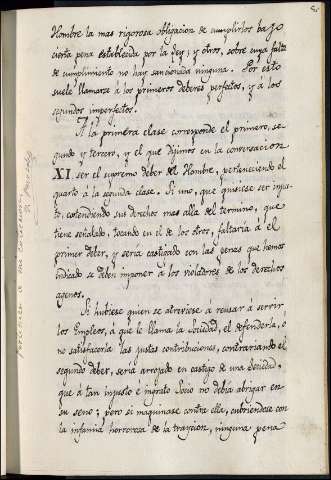 8.
Hombre la mas rigorosa obligacion de cumplirlos bajo
cierta pena establecida por la Ley; y otros, sobre cuya falta
de cumplimiento no hay sancionada ninguna. Por esto
suele llamarse à los primeros deberes perfectos, y à los
segundos imperfectos.
A la primera clase corresponde el primero, se-
gundo y tercero, y el que dijimos en la conversacion
XI. ser el supremo deber del Hombre, perteneciendo el
quarto à la segunda clase. Si uno, que quisiese ser injus-
to, estendiendo sus derechos mas alla del termino, que
tiene señalado, tocando en el de los otros, faltaría à el
primer deber, y sería castigado con las penas que hemos
indicado se deben imponer à los violadores de los derechos
agenos.
Si hubiese quien se atreviese a reusar à servir
los Empleos, à que le llama la Sociedad, el defenderla, ó
no satisfacerla las justas contribuciones, contrariando el
segundo deber, sería arrojado en castigo de una Sociedad,
que à tan injusto è ingrato Socio no debía abrigar en
su seno; pero si maquinase contra ella, cubriendose con
la infamia horrorosa de la traycion, ninguna pena